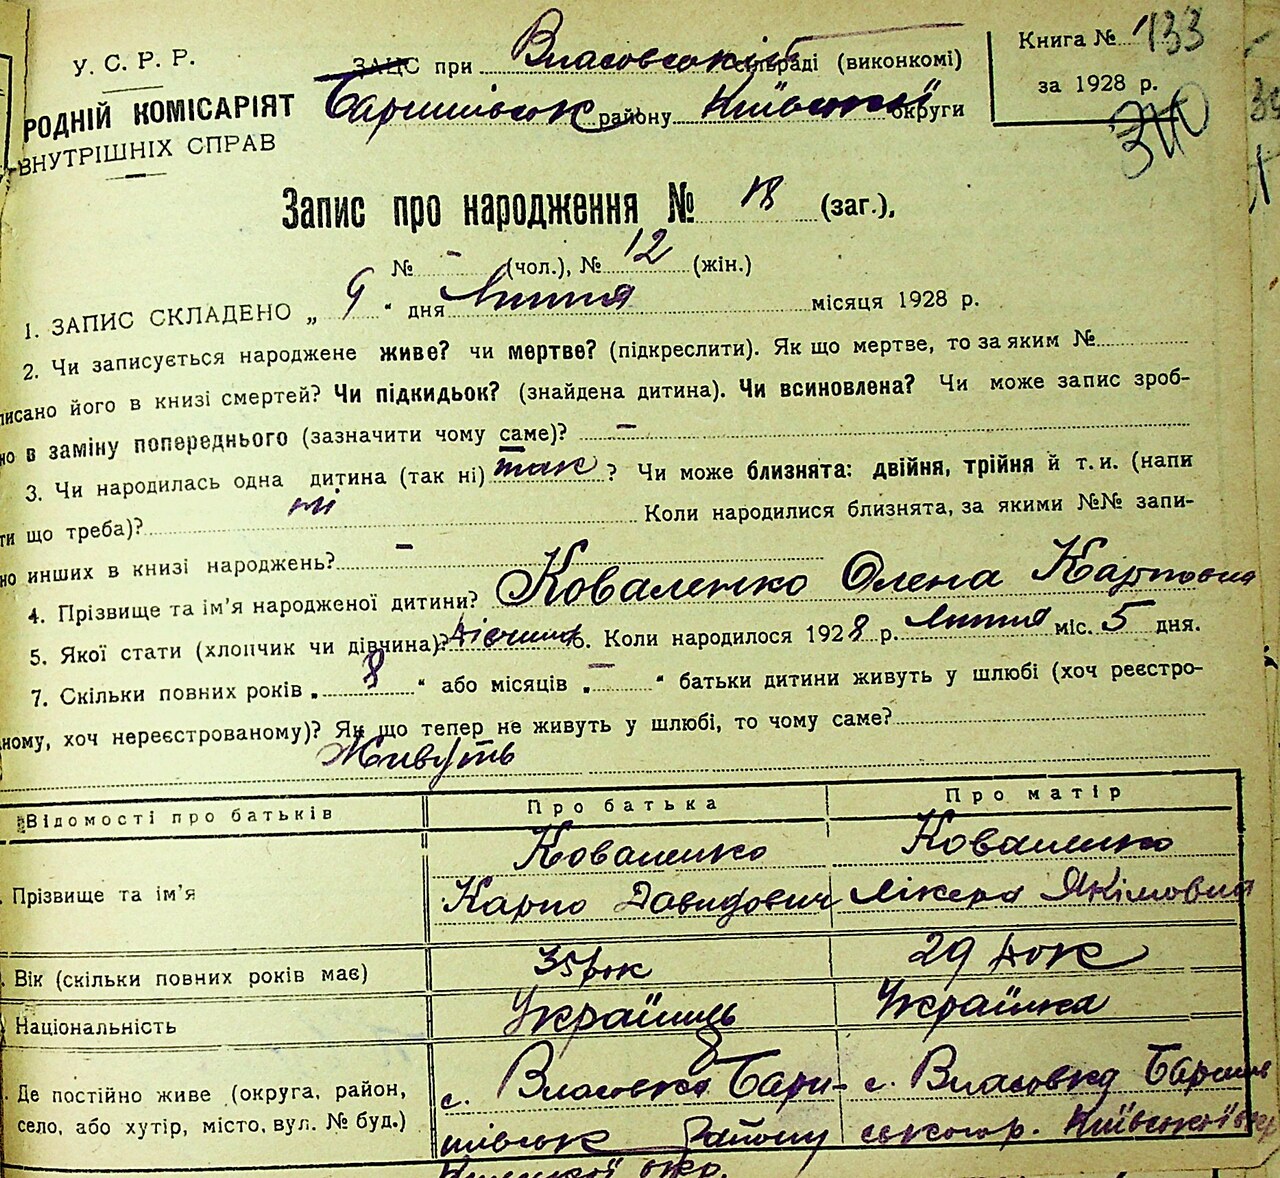 У. С. Р. Р.
РОДНІЙ КОМІСАРІЯТ
ВНУТРІШНІХ СПРАВ
ЗАЦС при Власовській сільраді (виконкомі)
Баришівськ району Київської округи
Книга № 133
за 1928 р.
340
Запис про народження № 18 (заг.),
№ - (чол.), № 12 (жін.)
1. ЗАПИС СКЛАДЕНО „ 9 “ дня Липня місяця 1928 р.
2. Чи записується народжене живе? чи мертве? (підкреслити). Як що мертве, то за яким №
писано його в книзі смертей? Чи підкидьок? (знайдена дитина). Чи всиновлена? Чи може запис зроб-
но в заміну попереднього (зазначити чому саме)? —
3. Чи народилась одна дитина (так ні) так ? Чи може близнята: двійня, трійня й т. и. (напи
ти що треба)? ні Коли народилися близнята, за якими №№ запи-
но инших в книзі народжень? —
4. Прізвище та ім’я народженої дитини? Коваленко Олена Карповна
5. Якої стати (хлопчик чи дівчина)? дівчина 6. Коли народилося 1928 р. Липня міс. 5 дня.
7. Скільки повних років „ 8 “ або місяців „ — “ батьки дитини живуть у шлюбі (хоч реєстро-
ному, хоч нереєстрованому)? Як що тепер не живуть у шлюбі, то чому саме?
Живуть
Відомості про батьків Про батька Про матір
Прізвище та ім’я
Коваленко Коваленко
Карпо Давидович Лікера Якімовна
Вік (скільки повних років має) 35 рок 29 рок
Національність Українець Українка
Де постійно живе (округа, район,
село, або хутір, місто, вул. № буд.)
с. Власовка Бари- с. Власовка Баришів
шівськ району ського р. Київської окр
Київської окр.